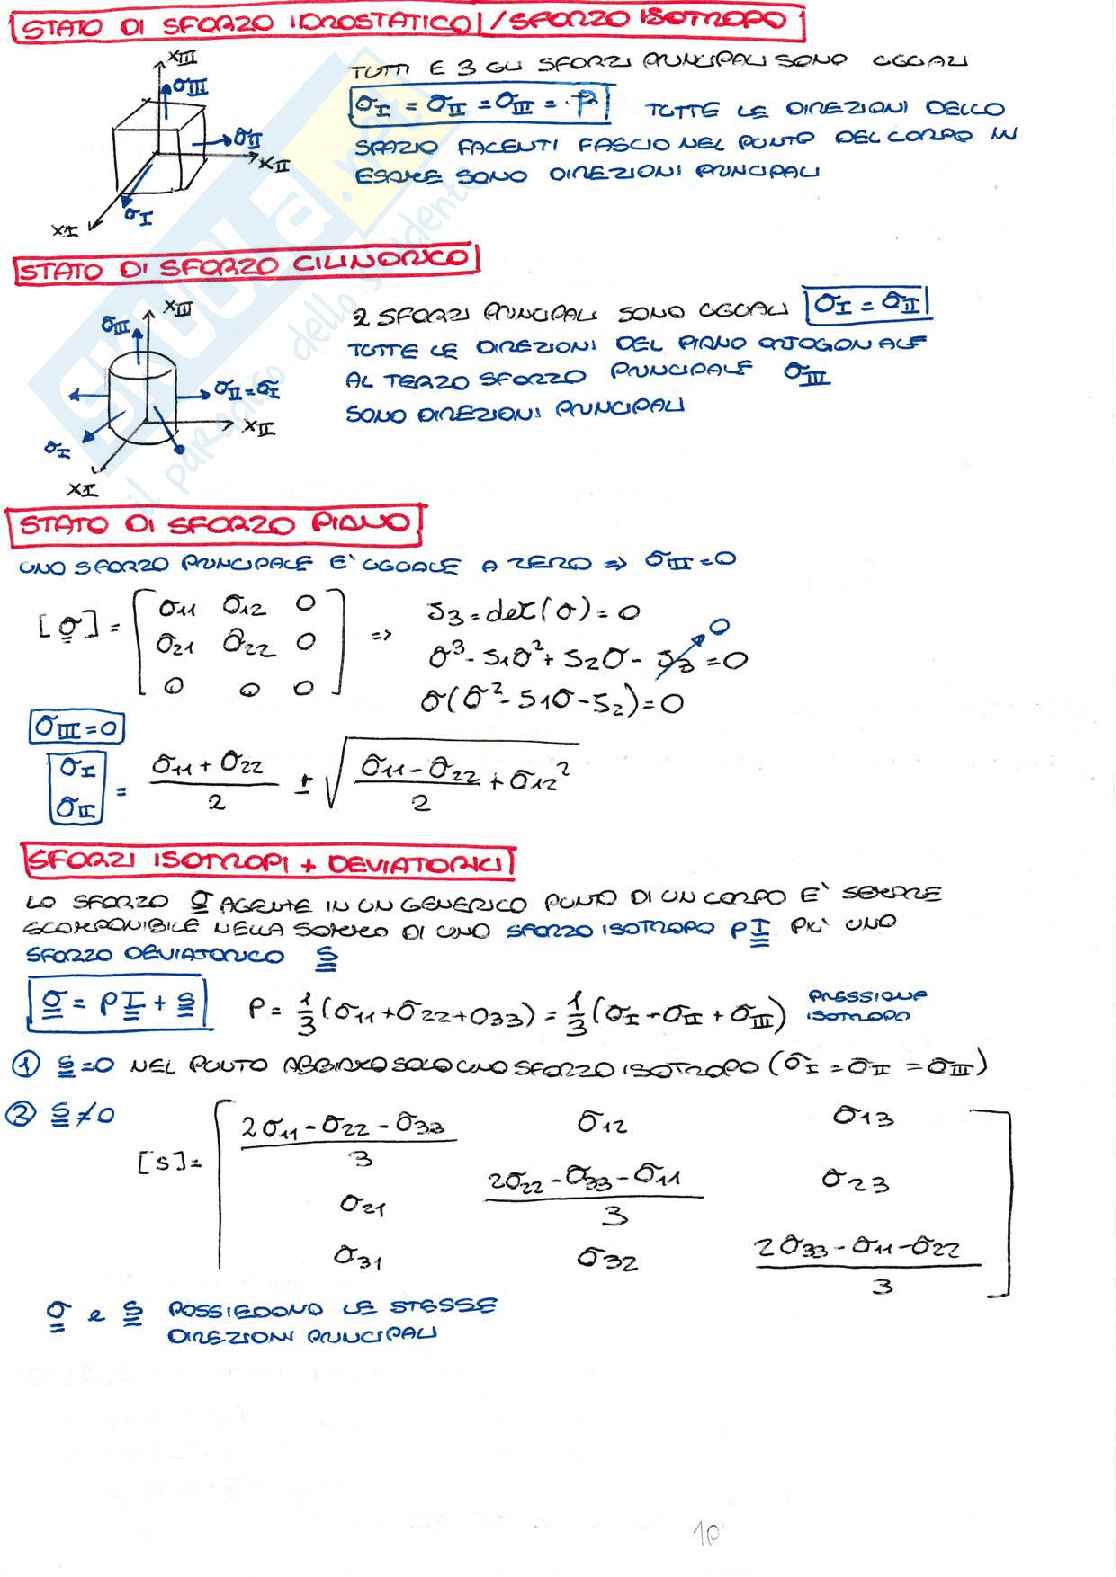 STATO DI SFORZO IDROSTATICO / SFORZO ISOTROPO
XIII
σIII
σII
XII
σI
XI
TUTTI E 3 GLI SFORZI PRINCIPALI SONO UGUALI
σI = σII = σIII = P TUTTE LE DIREZIONI DELLO
SPAZIO FACENTI FASCIO NEL PUNTO DEL CORPO IN
ESAME SONO DIREZIONI PRINCIPALI
STATO DI SFORZO CILINDRICO
XIII
σIII
σII = σI
XII
σI
XI
2 SFORZI PRINCIPALI SONO UGUALI σI = σII
TUTTE LE DIREZIONI DEL PIANO ORTOGONALE
AL TERZO SFORZO PRINCIPALE σIII
SONO DIREZIONI PRINCIPALI
STATO DI SFORZO PIANO
UNO SFORZO PRINCIPALE E' UGUALE A ZERO => σIII = 0
[σ] = [σ11 σ12 0
σ21 σ22 0
0 0 0] =>
S3 = det(σ) = 0
σ³ - S1σ² + S2σ - S3 = 0
0
σ(σ² - S1σ - S2) = 0
σIII = 0
σI
σII
= (σ11 + σ22)/2 ± √((σ11 - σ22)/2 + σ12²)
SFORZI ISOTROPI + DEVIATORICI
LO SFORZO σ AGENTE IN UN GENERICO PUNTO DI UN CORPO E' SEMPRE
SCOMPONIBILE NELLA SOMMA DI UNO SFORZO ISOTROPO PI PIU' UNO
SFORZO DEVIATORICO S
σ = PI + S P = 1/3 (σ11 + σ22 + σ33) = 1/3 (σI + σII + σIII) PRESSIONE
ISOTROPA
① S = 0 NEL PUNTO ABBIAMO SOLO UNO SFORZO ISOTROPO (σI = σII = σIII)
② S ≠ 0
[S] = [(2σ11 - σ22 - σ33)/3 σ12 σ13
σ21 (2σ22 - σ33 - σ11)/3 σ23
σ31 σ32 (2σ33 - σ11 - σ22)/3]
σ e S POSSIEDONO LE STESSE
DIREZIONI PRINCIPALI
10
skuola.net
il paradiso dello studente